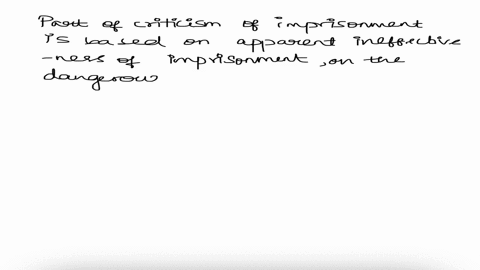 Part of criticism of imprisonment
is based on apparent ineffective
-ness of imprisonment, on the
dangerou